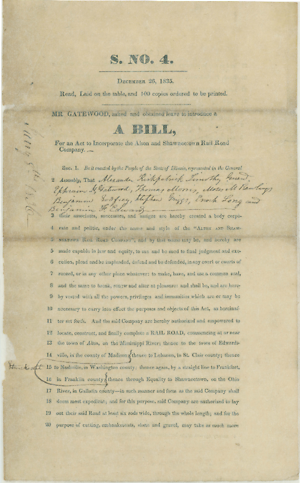 S. NO. 4.
DECEMBER 26, 1835.
Read, Laid on the table, and 100 copies ordered to be printed.
MR. GATEWOOD, asked and obtained leave to introduce
A BILL,
For an Act to Incorporate the Alton and Shawneetown Rail Road
Company.
SEC. 1. Be it enacted by the People of the State of Illinois, represented in the General
2 Assembly, That Alexander Kirkpatrick, Timothy Guard,
Ephraim H. Gatewood, Thomas M. Moses M. Rawlings
Benjamin Godfrey, Stephen Griggs, Enoch Long and
Benjamin
3 their associates, successors, and assigns are hereby created a body corpo-
4 rate and politic, under the name and style of the "ALTON AND SHAW-
5 NEETOWN RAIL ROAD COMPANY," and by that name may be, and hereby are
6 made capable in law and equity, to sue and be sued to final judgment and exe-
7 cution, plead and be impleaded, defend and be defended, in any court or courts of
8 record, or in any other place whatsoever to make, have, and use a common seal,
9 and the same to break, renew and alter at pleasure: and shall be, and are here-
10 by vested with all the powers, privileges and immunities which are or may be
11 necessary to carry into effect the purposes and objects of this Act, as hereinaf-
12 ter set forth. And the said Company are hereby authorized and empowered to
13 locate, construct, and finally complete a RAIL ROAD, commencing at or near
the town of Alton, on the Mississippi River; thence to the town of Edwards-
14 ville, in the county of Madison; thence to Lebanon, in St. Clair county; thence
15 to Nashville, in Washington county; thence again, by a straight line to Frankfort,
16 in Franklin county; thence through Equality to Shawneetown, on the Ohio
17 River, in Gallatin county—in such manner and form as the said Company shall
18 deem most expedient; and for this purpose, said Company are authorized to lay
19 out their said Road at least six rods wide, through the whole length; and for the
20 purpose of cutting, embankments, stone and gravel, may take as much more